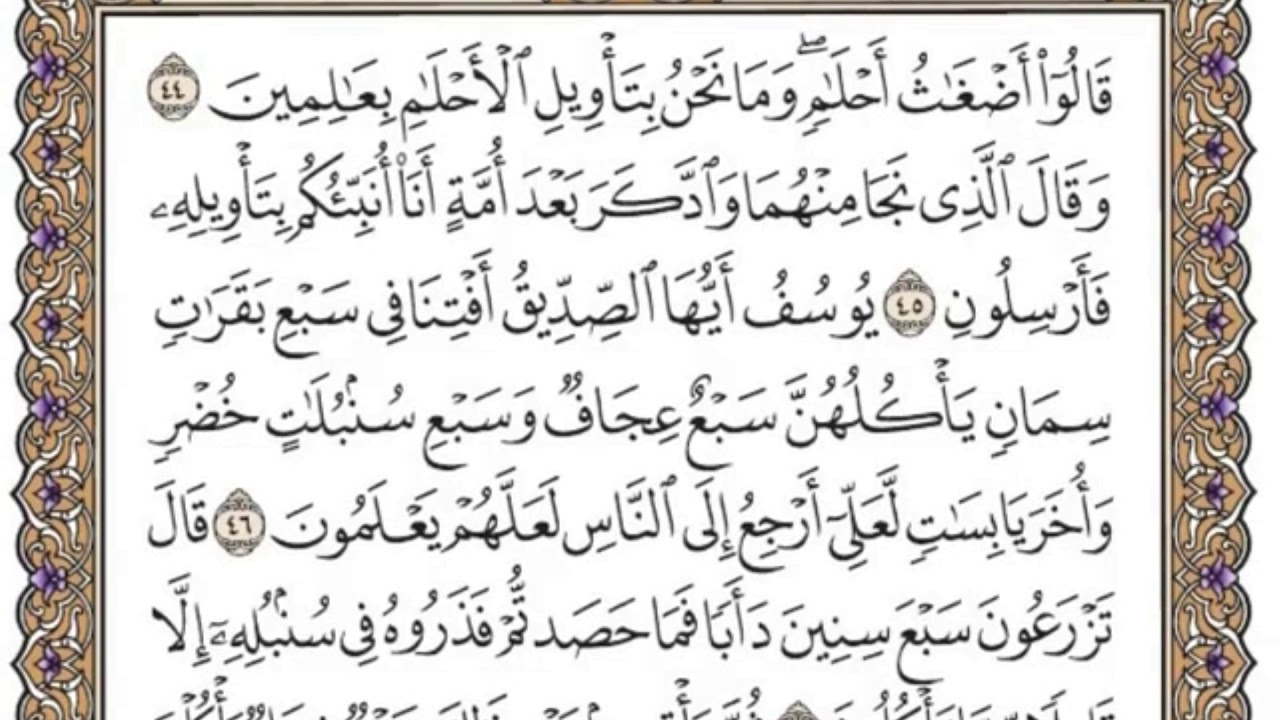 قَالُوٓا۟ أَضْغَٰثُ أَحْلَٰمٍۖ وَمَا نَحْنُ بِتَأْوِيلِ ٱلْأَحْلَٰمِ بِعَٰلِمِينَ ٤٤
وَقَالَ ٱلَّذِى نَجَا مِنْهُمَا وَٱدَّكَرَ بَعْدَ أُمَّةٍ أَنَا۠ أُنَبِّئُكُم بِتَأْوِيلِهِۦ
فَأَرْسِلُونِ ٤٥ يُوسُفُ أَيُّهَا ٱلصِّدِّيقُ أَفْتِنَا فِى سَبْعِ بَقَرَٰتٍ
سِمَانٍ يَأْكُلُهُنَّ سَبْعٌ عِجَافٌ وَسَبْعِ سُنۢبُلَٰتٍ خُضْرٍ
وَأُخَرَ يَابِسَٰتٍ لَّعَلِّىٓ أَرْجِعُ إِلَى ٱلنَّاسِ لَعَلَّهُمْ يَعْلَمُونَ ٤٦ قَالَ
تَزْرَعُونَ سَبْعَ سِنِينَ دَأَبًا فَمَا حَصَدتُّمْ فَذَرُوهُ فِى سُنۢبُلِهِۦٓ إِلَّا